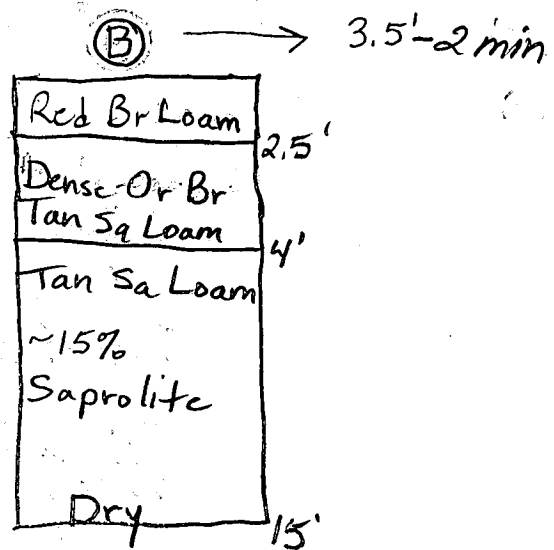 B 3.5'-2 min
Red Br Loam
2.5'
Dense-Or Br
Tan Sa Loam
4'
Tan Sa Loam
~15%
Saprolite
Dry
15'